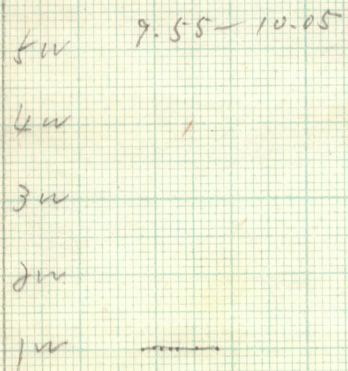 9.55 - 10.05
5w
4w
3w
2w
1w